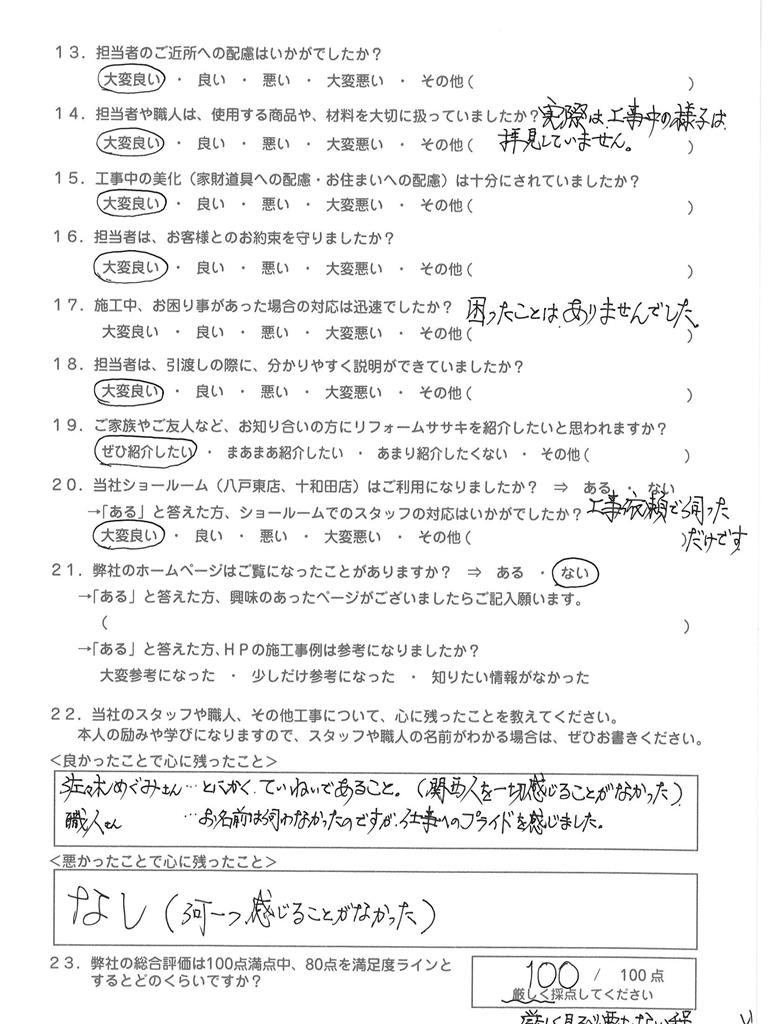 13．担当者のご近所への配慮はいかがでしたか？
大変良い ・ 良い ・ 悪い ・ 大変悪い ・ その他（ ）
14．担当者や職人は、使用する商品や、材料を大切に扱っていましたか？ 実際は、工事中の様子は
大変良い ・ 良い ・ 悪い ・ 大変悪い ・ その他（ 拝見していません。 ）
15．工事中の美化（家財道具への配慮・お住まいへの配慮）は十分にされていましたか？
大変良い ・ 良い ・ 悪い ・ 大変悪い ・ その他（ ）
16．担当者は、お客様とのお約束を守りましたか？
大変良い ・ 良い ・ 悪い ・ 大変悪い ・ その他（ ）
17．施工中、お困り事があった場合の対応は迅速でしたか？ 困ったことは、ありませんでした。
大変良い ・ 良い ・ 悪い ・ 大変悪い ・ その他（ ）
18．担当者は、引渡しの際に、分かりやすく説明ができていましたか？
大変良い ・ 良い ・ 悪い ・ 大変悪い ・ その他（ ）
19．ご家族やご友人など、お知り合いの方にリフォームササキを紹介したいと思われますか？
ぜひ紹介したい ・ まあまあ紹介したい ・ あまり紹介したくない ・ その他（ ）
20．当社ショールーム（八戸東店、十和田店）はご利用になりましたか？ ⇒ ある ・ ない
→「ある」と答えた方、ショールームでのスタッフの対応はいかがでしたか？ 工事依頼で伺った
大変良い ・ 良い ・ 悪い ・ 大変悪い ・ その他（ ）だけです
21．弊社のホームページはご覧になったことがありますか？ ⇒ ある ・ ない
→「ある」と答えた方、興味のあったページがございましたらご記入願います。
（ ）
→「ある」と答えた方、ＨＰの施工事例は参考になりましたか？
大変参考になった ・ 少しだけ参考になった ・ 知りたい情報がなかった
22．当社のスタッフや職人、その他工事について、心に残ったことを教えてください。
本人の励みや学びになりますので、スタッフや職人の名前がわかる場合は、ぜひお書きください。
＜良かったことで心に残ったこと＞
佐々木めぐみさん…とにかく、ていねいであること。（関西人を一切感じることがなかった）
職人さん …お名前は伺わなかったのですが、仕事へのプライドを感じました。
＜悪かったことで心に残ったこと＞
なし（何一つ感じることがなかった）
23．弊社の総合評価は100点満点中、80点を満足度ラインと
するとどのくらいですか？
100 / 100点
厳しく採点してください